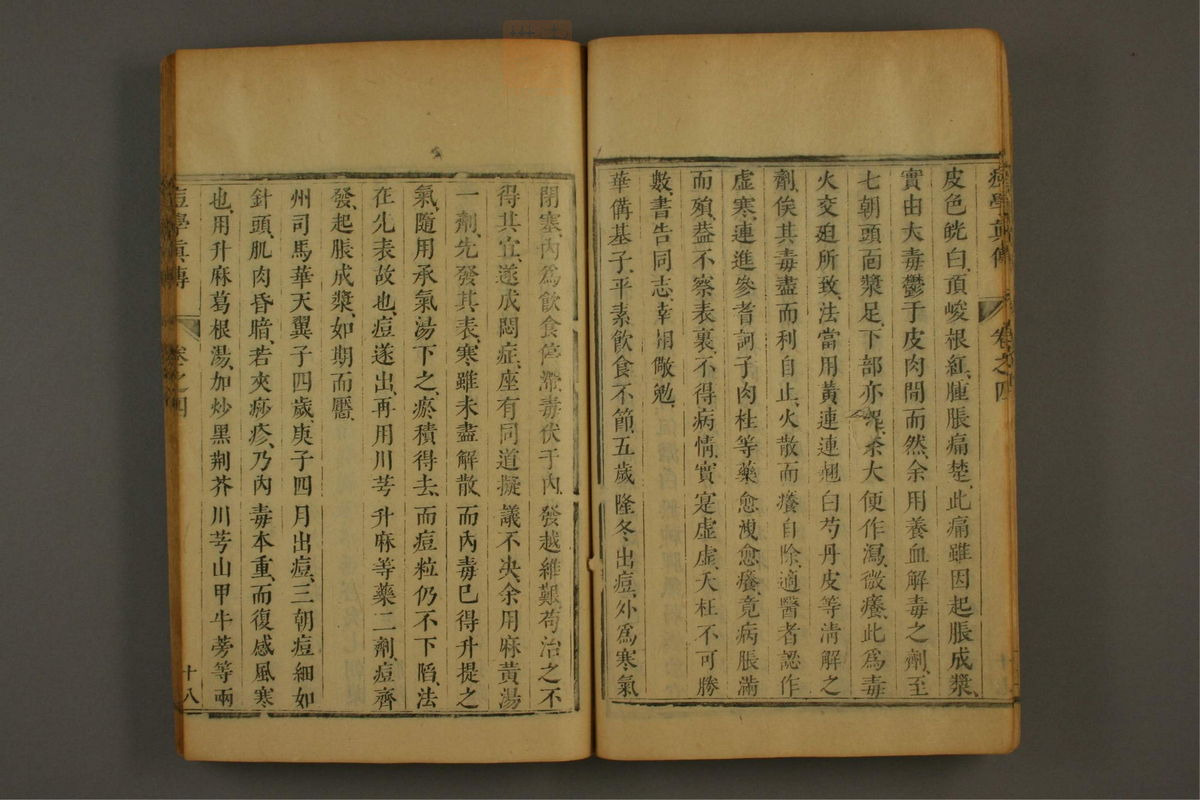 皮色皝白、頂峻根紅、腫脹痛楚、此痛雖因起脹成漿、
實由大毒鬱于皮肉間而然、余用養血解毒之劑、至
七朝頭面漿足、下部亦起、余大便作瀉、微癢、此爲毒
火交廹所致、法當用黃連連翹白芍丹皮等淸解之
劑、俟其毒盡而利自止、火散而癢自除、適醫者認作
虛寒、連進參耆訶子肉桂等藥、愈洩愈癢、竟病脹滿
而殞、葢不察表裏、不得病情、實寔虛虛、夭枉不可勝
數、書告同志、幸相儆勉、
華傋基子、平素飲食不節、五歲隆冬出痘、外爲寒氣
閉塞、內爲飲食停滯、毒伏于內、發越維艱、苟治之不
得其宜、遂成悶症、座有同道擬議不決、余用麻黃湯
一劑、先發其表、寒雖未盡解散、而內毒已得升提之
氣、隨用承氣湯下之、瘀積得去、而痘粒仍不下䧟、法
在先表故也、痘遂出、再用川芎升麻等藥二劑、痘齊
發起脹成漿、如期而靨、
州司馬華天翼子四歲、庚子四月出痘、三朝痘細如
針頭、肌肉昏暗、若夾痧疹、乃內毒本重、而復感風寒
也、用升麻葛根湯、加炒黑荆芥川芎山甲牛蒡等兩
痘學眞傳
卷之四
十八